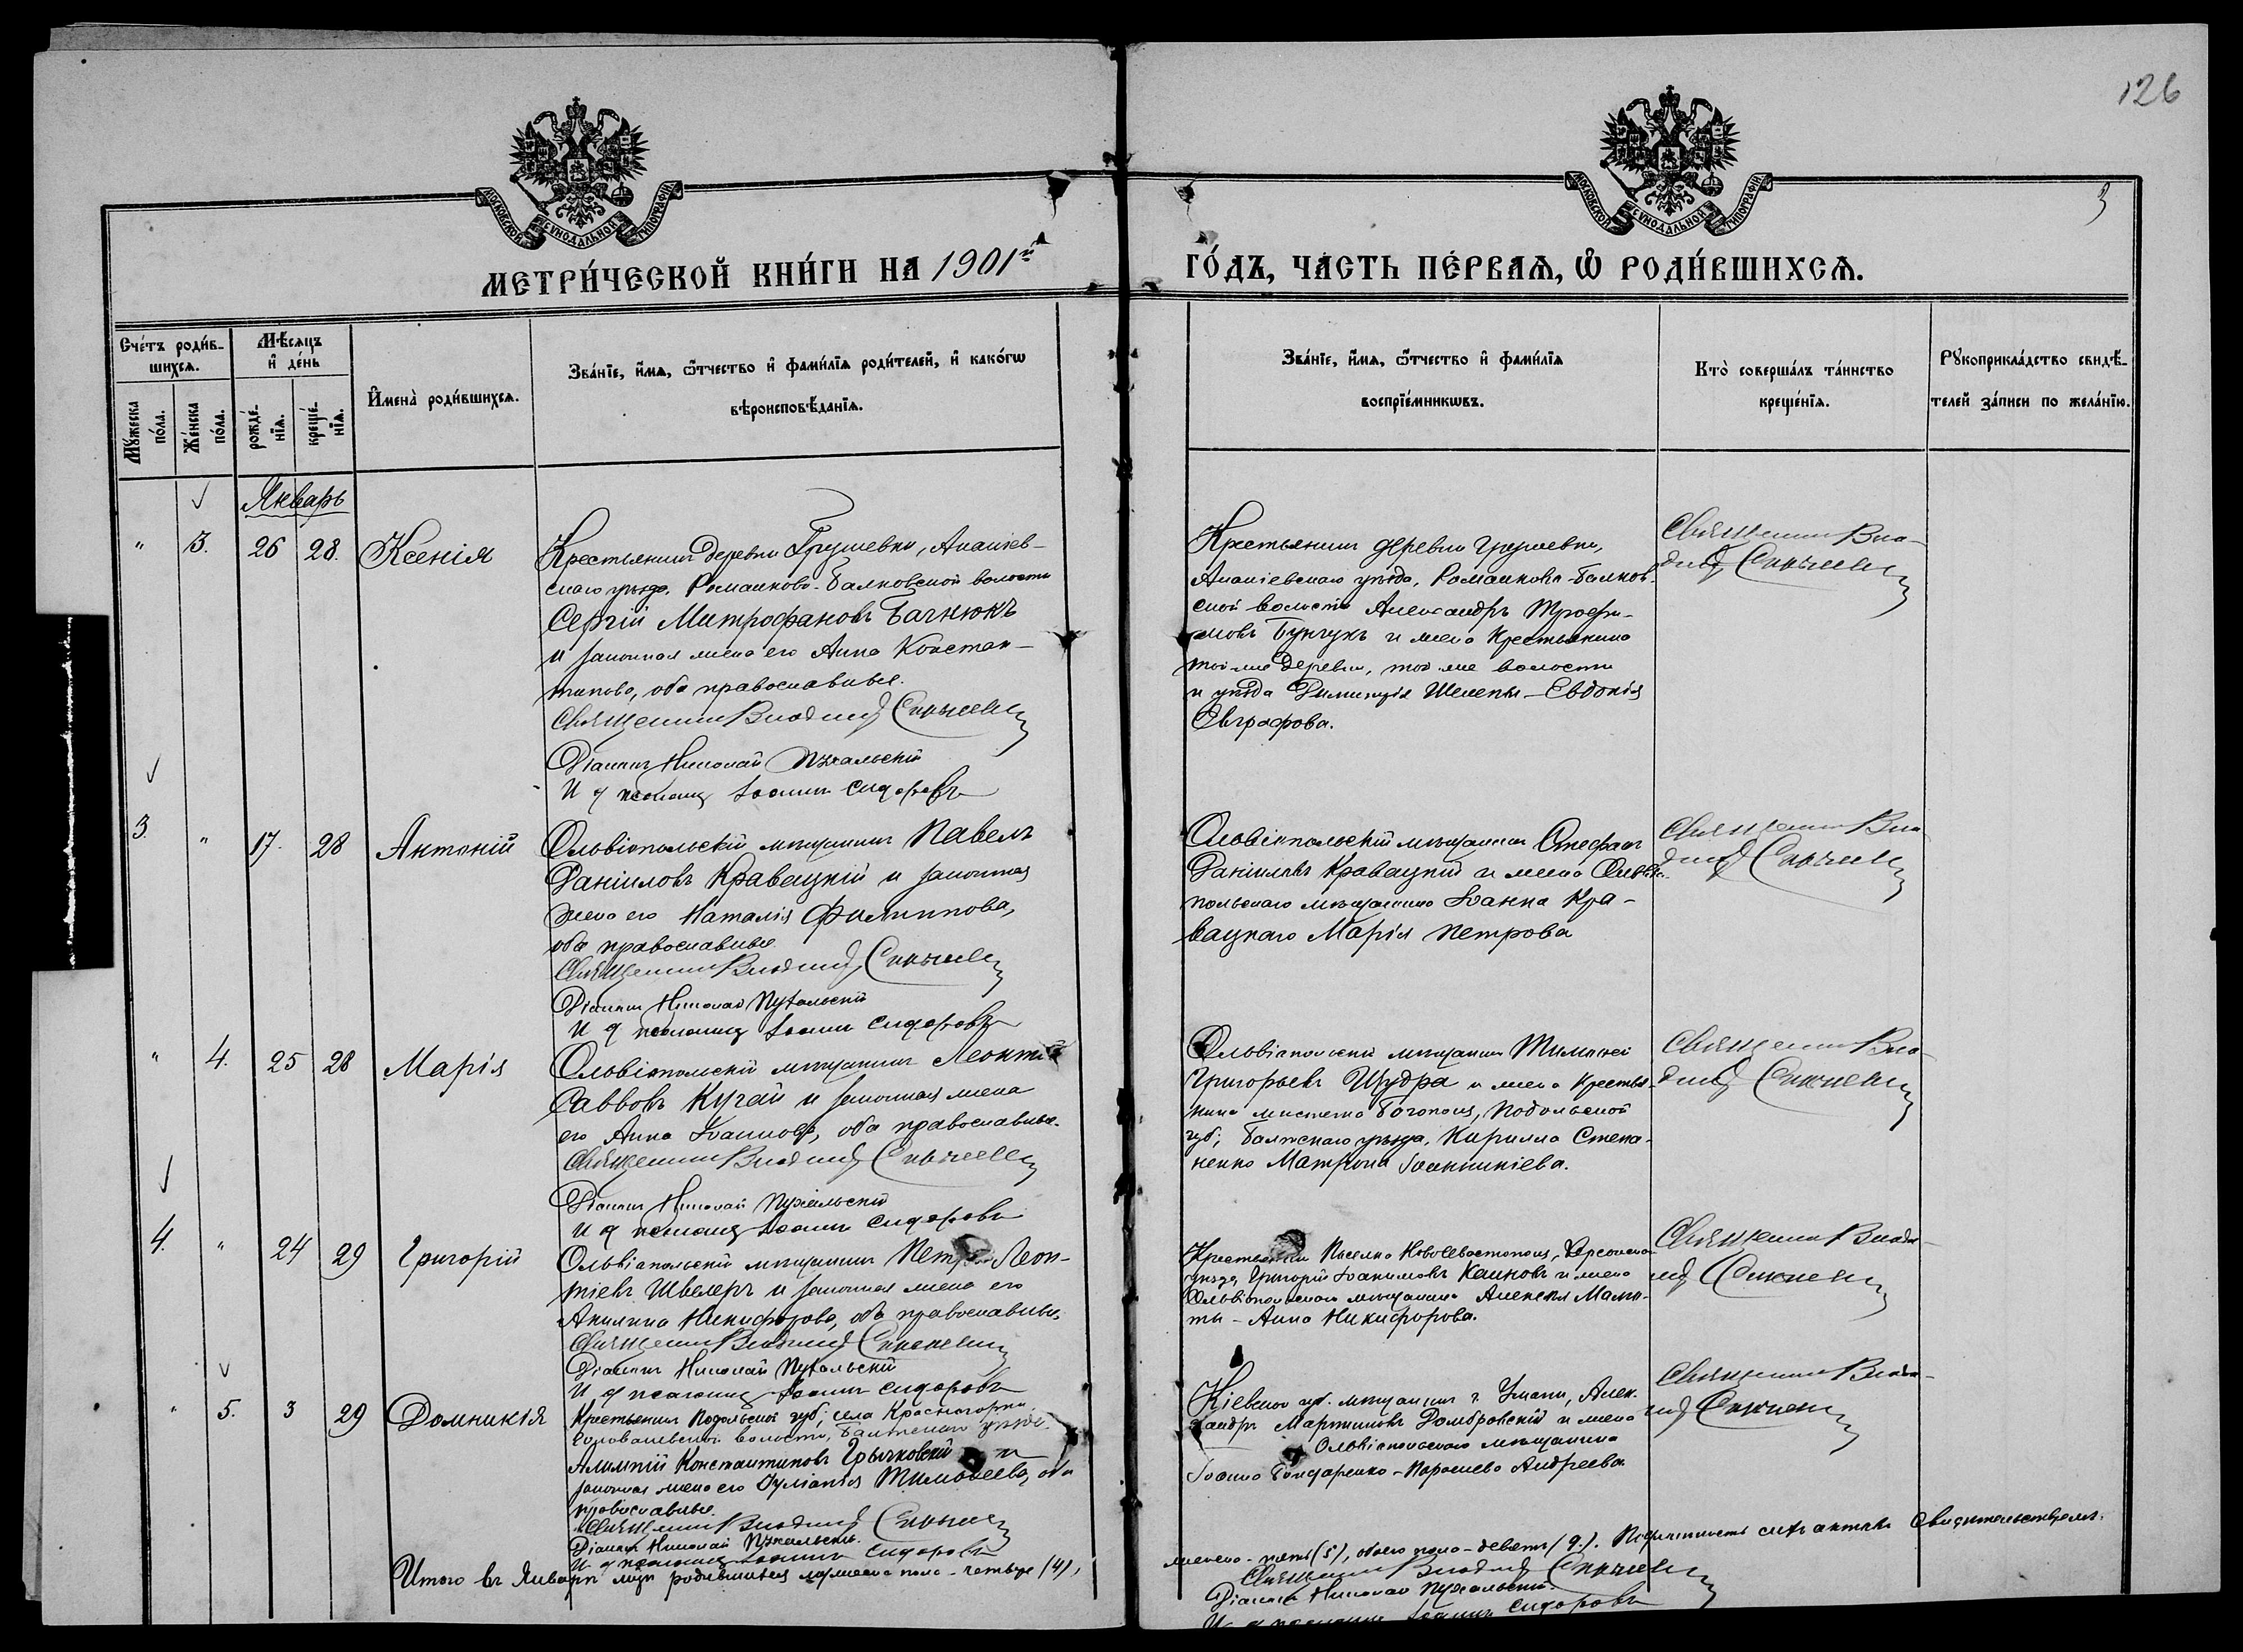 126
3
МОСКОВСКОЙ СѴНОДАЛЬНОЙ ТИПОГРАФІИ
МОСКОВСКОЙ СѴНОДАЛЬНОЙ ТИПОГРАФІИ
МЕТРИ́ЧЕСКОЙ КНИ́ГИ НА 1901й
ГО́ДЪ, ЧА́СТЬ ПЕ́РВАѦ, Ѡ҆ РОДИ́ВШИХСѦ.
Сче́тъ роди́в-
шихсѧ.
Мꙋ́жеска
по́ла.
Же́нска
по́ла.
Мѣ́сѧцъ
и҆ де́нь
рожде́-
нїѧ.
креще́-
нїѧ.
И҆мена̀ роди́вшихсѧ.
Зва́нїе, и҆́мѧ, ѻ҆́тчество и҆ фами́лїѧ роди́телей, и҆ како́гѡ
вѣроисповѣ́данїѧ.
Зва́нїе, и҆́мѧ, ѻ҆́тчество и҆ фами́лїѧ
воспрїе́мникѡвъ.
Кто̀ соверша́лъ та́инство
креще́нїѧ.
Рꙋкоприкла́дство свидѣ́-
телей за́писи по жела́нїю.
Январь
" 3. 26 28. Ксенія
Крестьянинъ деревни Грушевки, Ананьев-
скаго уѣзда, Романково-Балковской волости
Сергій Митрофановъ Бачнюкъ
и законная жена его Анна Констан-
тинова, оба православные.
Священникъ Владимір
Діаконъ Николай Пухальскій
И д псаломщ Іоаннъ Сидоровъ
Крестьянинъ деревни Грушевки,
Ананіевскаго уѣзда, Романково-Балков-
ской волости Александръ Трофи-
мовъ Бунчукъ и жена Крестьянина
той-же деревни, той-же волости
и уѣзда Димитрія Шелепы - Евдокія
Евграфова.
Священникъ Вла-
димір
3. " 17. 28 Антоній
Ольвіопольскій мѣщанинъ Павелъ
Даніиловъ Кравацкій и законная
жена его Наталія Филиппова,
оба православные
Священникъ Владимір
Діаконъ Николай Пухальскій
И д псаломщ Іоаннъ Сидоровъ
Ольвіопольскій мѣщанинъ Стефанъ
Даніиловъ Кравацкій и жена Ольвіо-
польскаго мѣщанина Іоанна Кра-
вацкаго Марія Петрова
Священникъ Вла-
димір
" 4. 25 28 Марія
Ольвіопольскій мѣщанинъ Леонтій
Саввовъ Кугай и законная жена
его Анна Іоаннова, оба православные.
Священникъ Владимір
Діаконъ Николай Пухальскій
И д псаломщ Іоаннъ Сидоровъ
Ольвіопольскій мѣщанинъ Тимофей
Григорьевъ Щудра и жена крестья-
нина мѣстечка Богополя, Подольской
губ, Балтскаго уѣзда, Кирилла Степа-
ненко Матрона Іоанникіева.
Священникъ Вла-
димір
4. " 24 29 Григорій
Ольвіопольскій мѣщанинъ Петръ Леон-
тіевъ Швелеръ и законная жена его
Акилина Никифорова, оба православные.
Священникъ Владимір
Діаконъ Николай Пухальскій
И д псаломщ Іоаннъ Сидоровъ
Крестьянинъ Поселка Новосевастополя, Херсонскаго
уѣзда, Григорій Іоакимовъ Каиновъ и жена
Ольвіопольскаго мѣщанина Алексѣя Мамы-
ты - Анна Никифорова.
Священникъ Влади-
мір
" 5. 3 29 Домникія
Крестьянинъ Подольской губ, села Красногорки,
Голованевской волости, Балтскаго уѣзда
Алимпій Константиновъ Грычковскій и
законная жена его Іуліанія Тимоѳеева, оба
православные.
Священникъ Владимір
Діаконъ Николай Пухальскій
И д псаломщ Іоаннъ Сидоровъ
Кіевской губ. мѣщанинъ г. Умани, Алек-
сандръ Мартиновъ Домбровскій и жена
Ольвіопольскаго мѣщанина
Іоанна Бондаренко - Параскева Андреева
Священникъ Влади-
мір
Итого въ Январѣ мцѣ родившихся мужеска пола - четыре (4),
женска - пять (5), обоего пола - девять (9). Подлинность сихъ актовъ свидѣтельствуемъ:
Священникъ Владимір
Діаконъ Николай Пухальскій
И д псаломщ Іоаннъ Сидоровъ